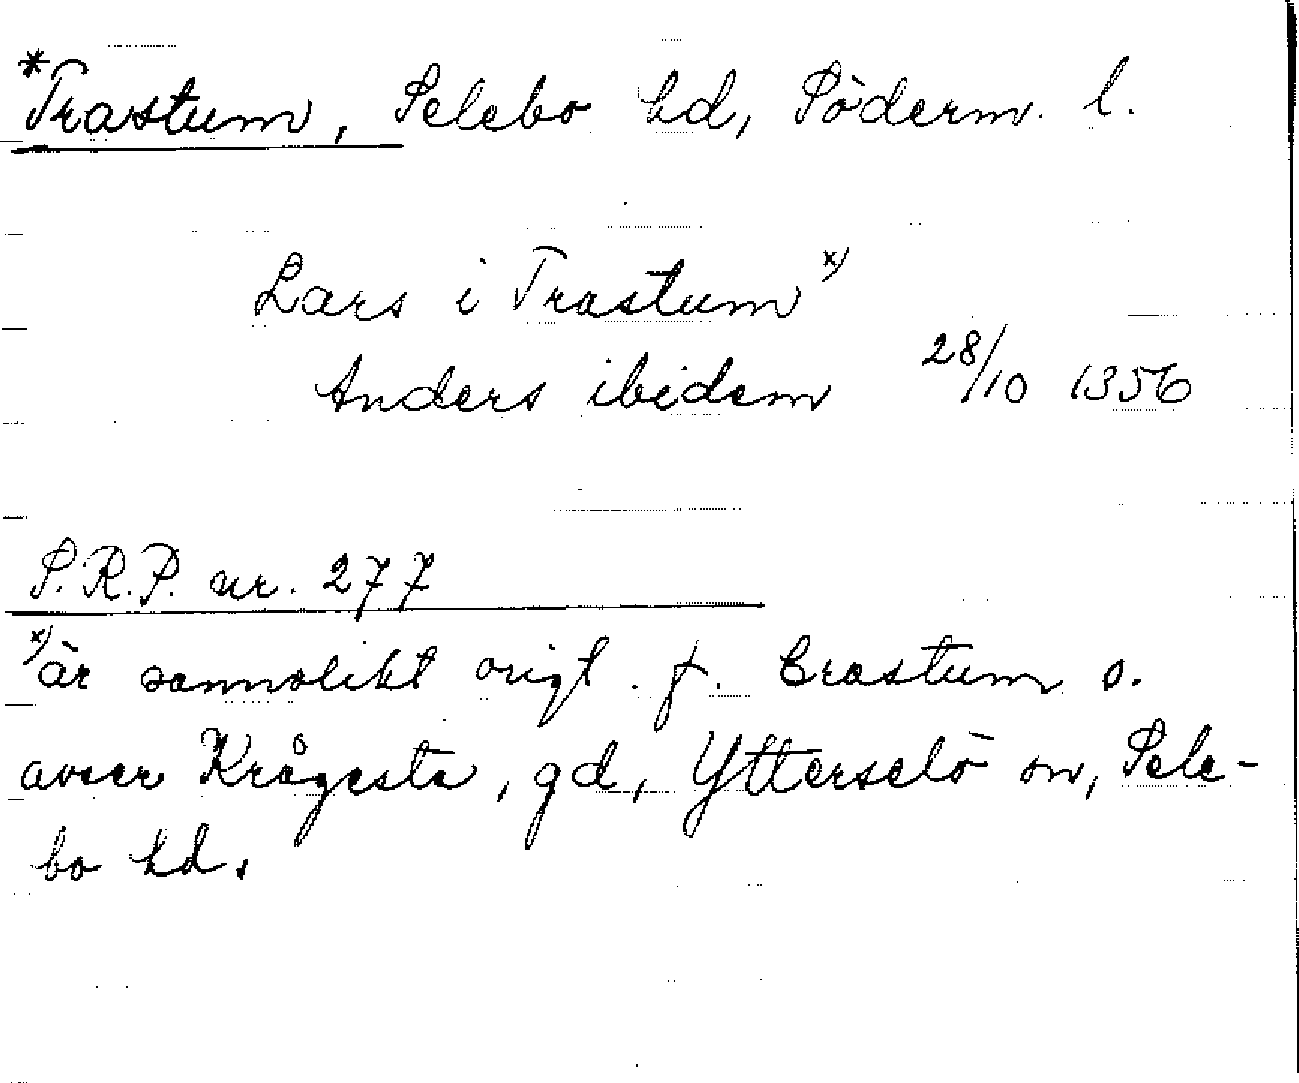 *Trastum, Selebo hd, Söderm. l.
Lars i Trastum x)
Anders ibidem 28/10 1356
S.R.P. nr. 277
x) är sannolikt origt. f. Crastum o.
avser Krågesta, gd, Ytterselö sn, Sele-
bo hd.